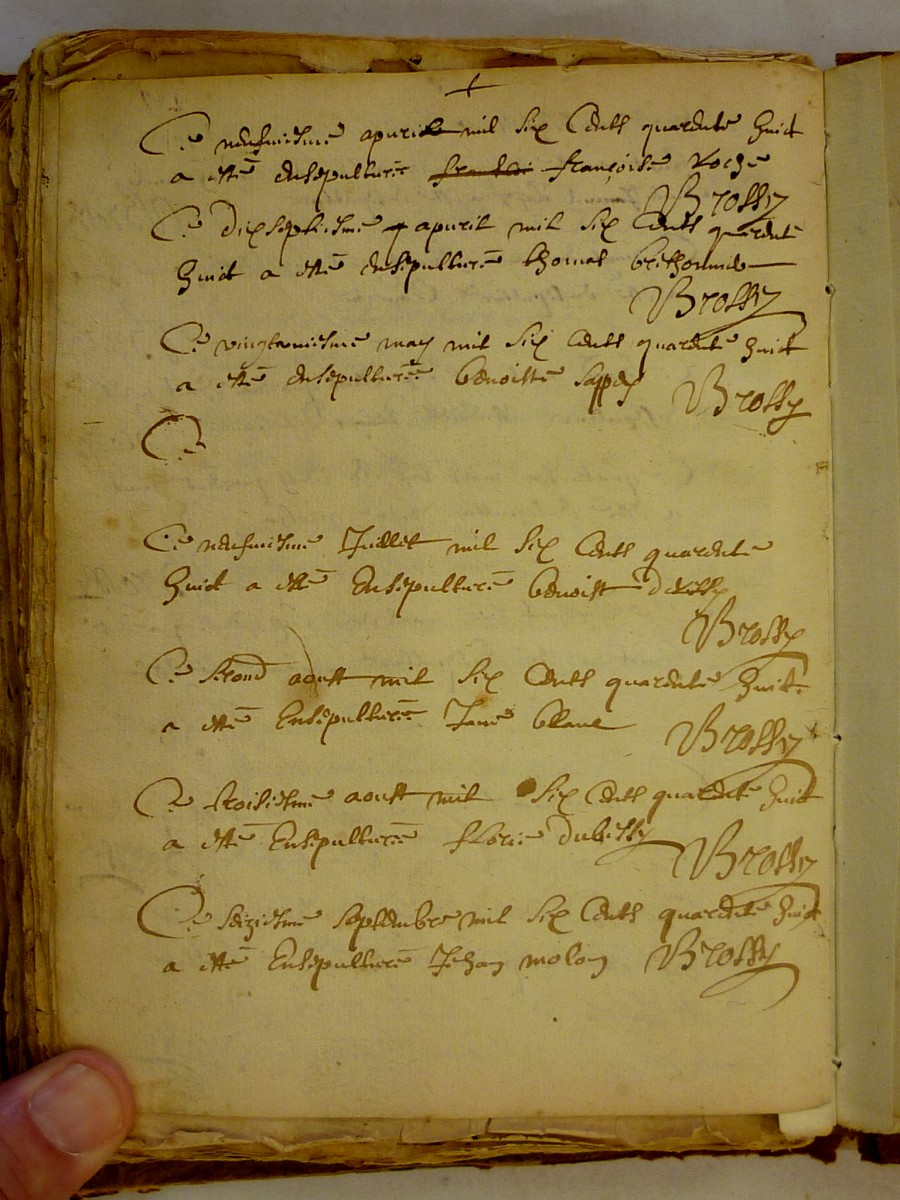 Ce neufuiesme apuril mil six Cents quarente huict
a esté ensepulturée françoise Roche
Brossy
Ce dixseptiesme apuril mil six Cents quarente
huict a esté ensepulturé thomas
Brossy
Ce may mil six Cents quarente huict
a esté ensepulturée benoiste sappey Brossy
Ce
Ce neufuiesme Juillet mil six Cents quarente
huict a esté Ensepulturé benoist
Brossy
Ce second aoust mil six Cents quarente huict
a esté Ensepulturée Jane blanc Brossy
Ce troisiesme aoust mil six Cents quarente huict
a esté Ensepulturée florie dubessy Brossy
Ce seiziesme septembre mil six Cents quarente huict
a esté Ensepulturé Jehan molon Brossy